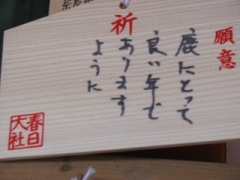 願意
祈
鹿にとって
良い年で
あります
ように
春日
大社